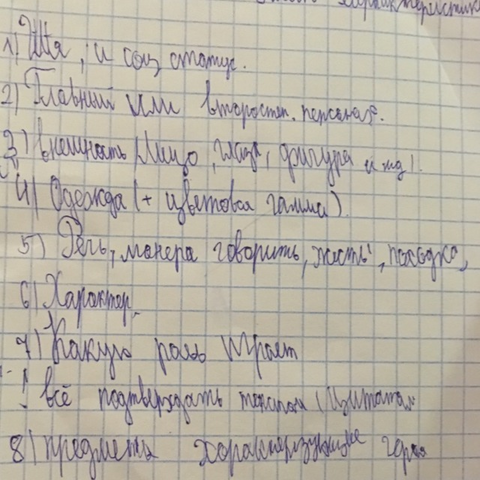 характеристик
1) Имя, и соц статус.
2) Главный или второстеп. персонаж.
3) внешность (лицо, глаза, фигура и тд).
4) Одежда (+ цветовая гамма).
5) Речь, манера говорить, жесты, походка,
6) Характер.
7) Какую роль играет
! всё подтверждать текстом (цитаты
8) предметы характеризующие героя